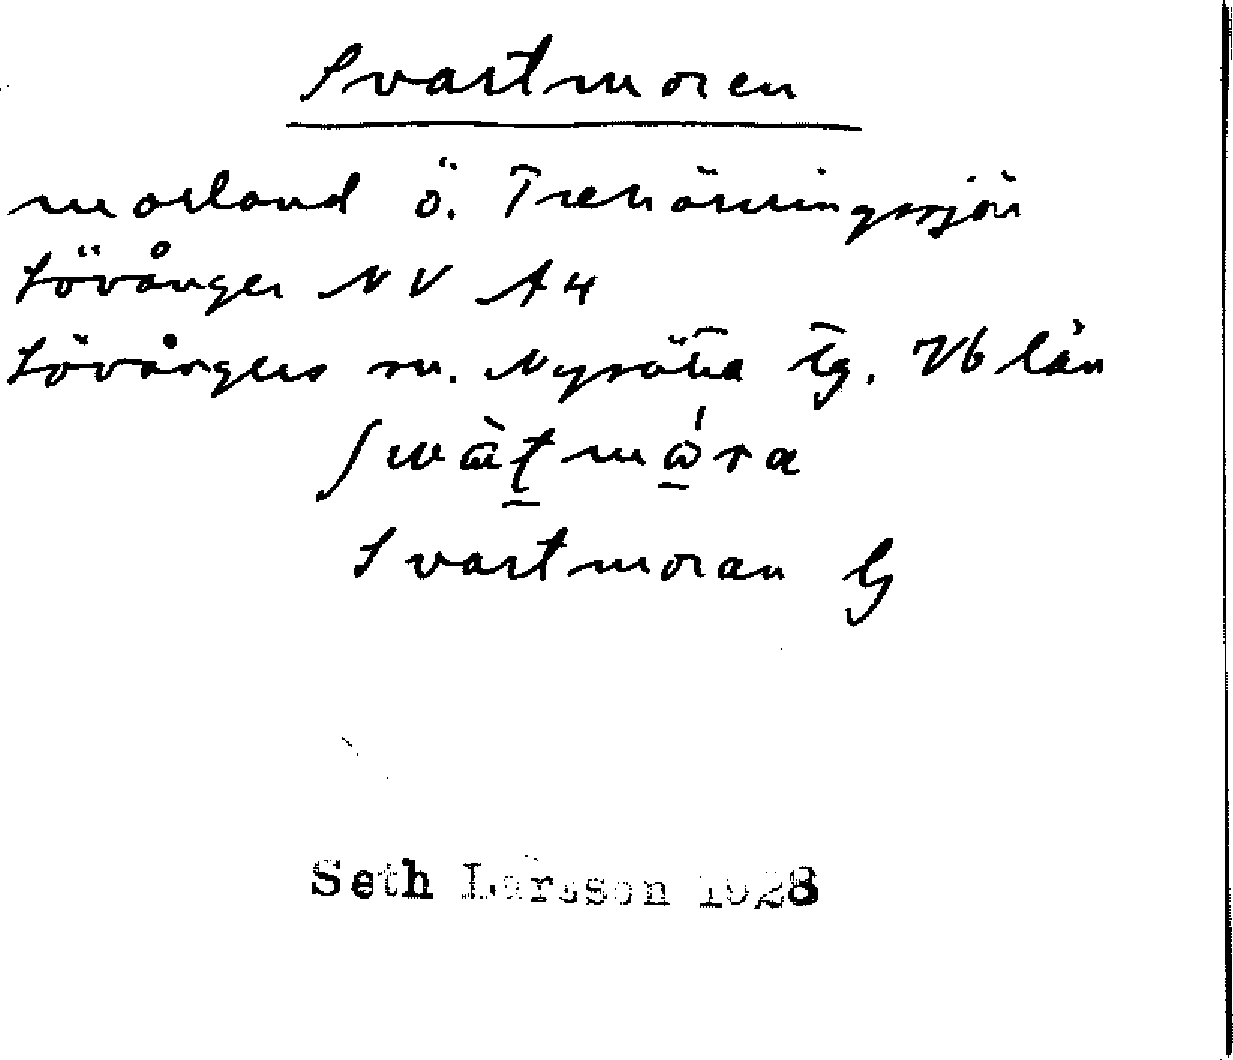 Svartmoren
morland ö. Trehörningssjön
Lövånger NV A4
Lövångers sn. Nysätra tg. Vb län
Svartmoran G
Seth Larsson 1928